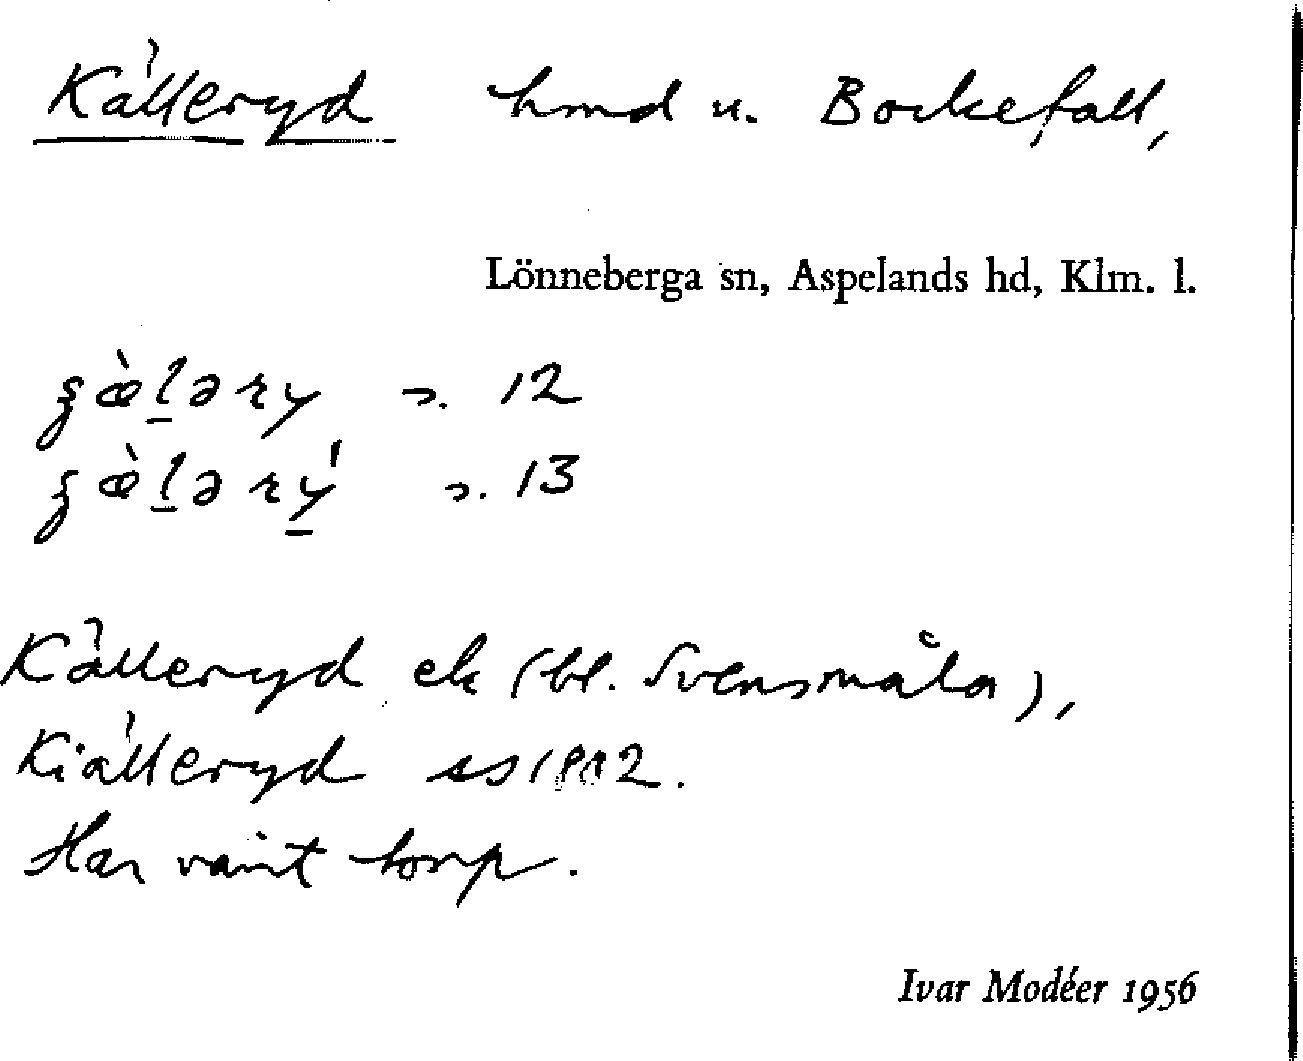 Källeryd hmd u. Bockefall,
Lönneberga sn, Aspelands hd, Klm. l.
s. 12
s. 13
Källeryd ek (bl. Svensmåla),
Kiälleryd ss 1802.
Har varit torp.
Ivar Modéer 1956